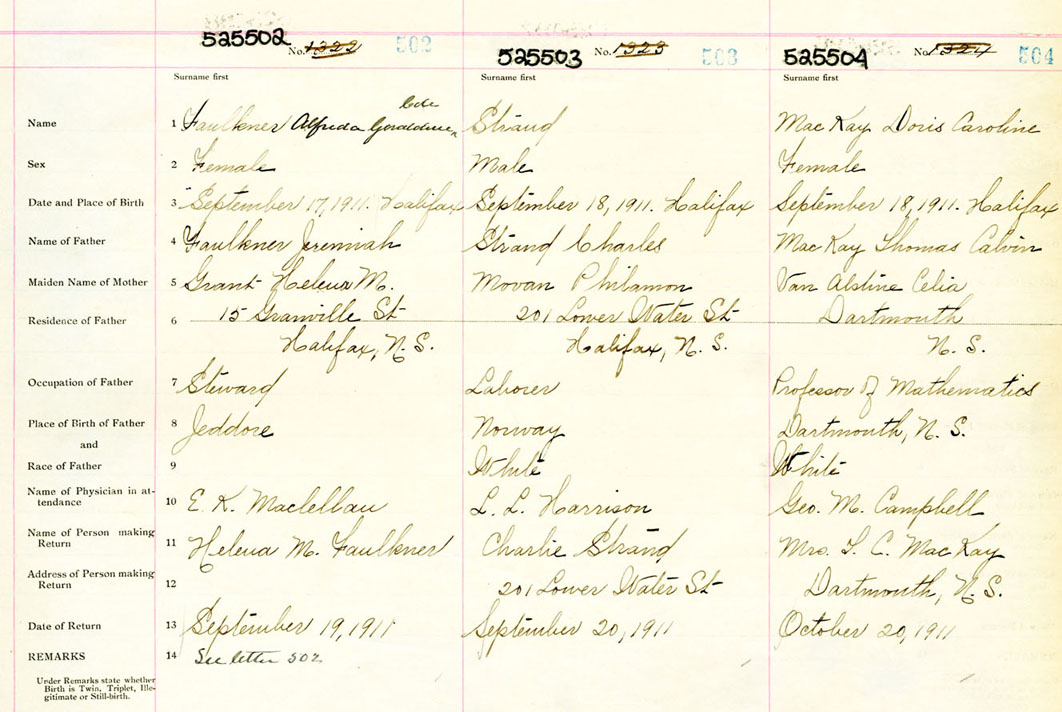 525502 No. 1322 502 525503 No. 1323 503 525504 No. 1324 504
Surname first Surname first Surname first
Name 1 Faulkner Alfreda Geraldine Strand Mac Kay Doris Caroline
Sex 2 Female Male Female
Date and Place of Birth 3 September 17, 1911. Halifax September 18, 1911. Halifax September 18, 1911. Halifax
Name of Father 4 Faulkner Jeremiah Strand Charles Mac Kay Thomas Calvin
Maiden Name of Mother 5 Grant Helena M. Movan Philamon Van Alstine Celia
Residence of Father 6 15 Granville St 201 Lower Water St Dartmouth
Halifax, N. S. Halifax, N. S. N. S.
Occupation of Father 7 Steward Laborer Professor of Mathematics
Place of Birth of Father 8 Jeddore Norway Dartmouth, N. S.
and
Race of Father 9 White White
Name of Physician in at-
tendance 10 E. K. Maclellan L. L. Harrison Geo. M. Campbell
Name of Person making
Return 11 Helena M. Faulkner Charlie Strand Mrs. T. C. Mac Kay
Address of Person making
Return 12 201 Lower Water St Dartmouth, N. S.
Date of Return 13 September 19, 1911 September 20, 1911 October 20, 1911
REMARKS 14 See letter 502
Under Remarks state whether
Birth is Twin, Triplet, Ille-
gitimate or Still-birth.